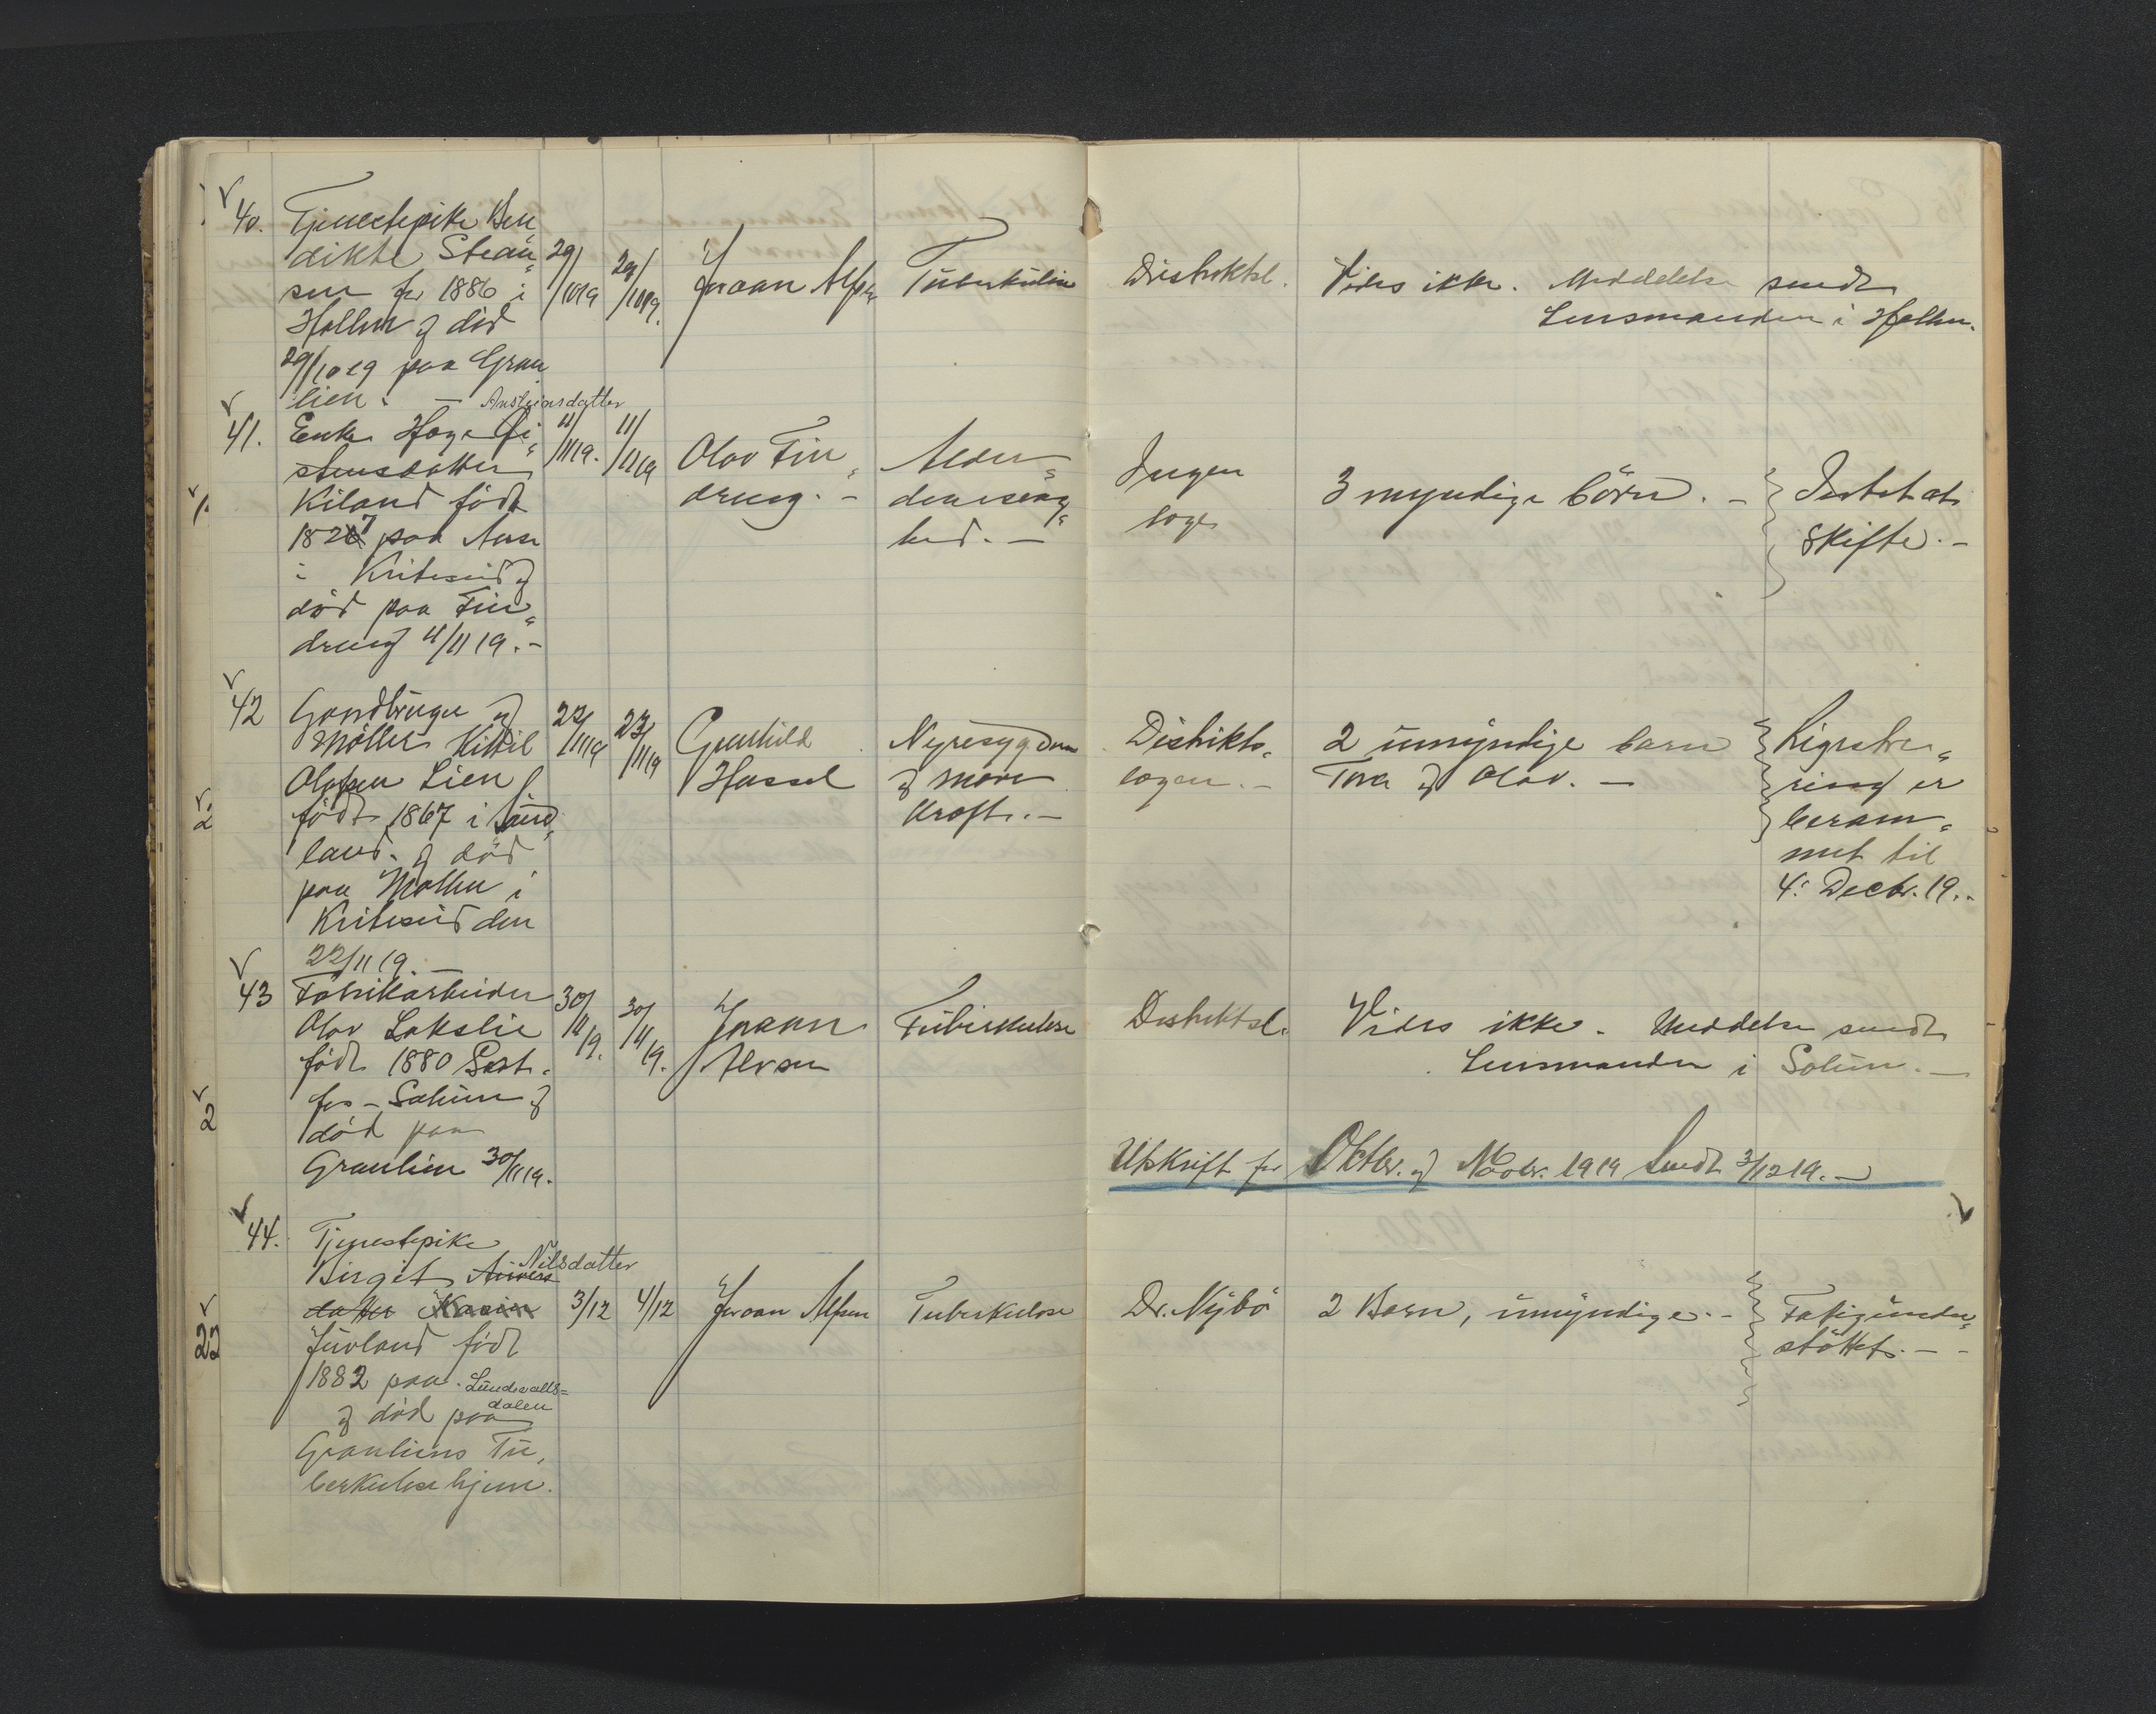 40. Tjenestepike Ben„
dikte Steân„
sen fr 1886 i
Hollen og död
29/10 19 paa Gran
lien. —
29/1019
29/1019.
Joraan Alfsen
Tuberkulose
Distriktsl.
Vides ikke. Meddelelse sendt
Lensmanden i Hollen.
41. Enke Hæge
Ansteinsdatter
Kiland född
1827 paa Aase
i Kviteseid og
död paa Fin„
dreng 11/11 19. –
11/1119.
11/1119
Olav Fin„
dreng. –
Alder„
domssvag„
hed. —
Ingen
læge
3 myndige börn. –
Privat
Skifte. –
42 Gaardbruger og
Möller Kittil
Olafsen Lien
född 1867 i Sand„
land. og död
paa Mollen i
Kviteseid den
22/11 19. —
22/1119
23/1119
Gunhild
Hassel
Nyresygdom
og mave
kræft. –
Distrikts„
lægen. –
2 umyndige barn
Tone og Olav. —
Registre„
ring er
beram„
met til
4: Decbr. 19..
43 Fabrikarbeider
Olav Lakslie
född 1880
– Solum og
död paa
Granlien 30/11 19.
30/11 19.
30/11 19.
Joraan
Alvsen
Tuberkulose
Distriktsl.
Vides ikke. Meddelelse sendt
Lensmanden i Solum. —
Utskrift for Oktbr. og Novbr. 1919 Sendt 3/12 19. —
44. Tjenestepike
Birgit Nilsdatter
datter
Juvland född
1882 paa Lundevalls=
dalen
og död paa
Granliens Tu„
berkulosehjem.
3/12
4/12
Joraan Alfsen
Tuberkulose
Dr. Nybö
2 Barn, umyndige. –
Fatigunder„
stöttet. – –
1
2
2
22